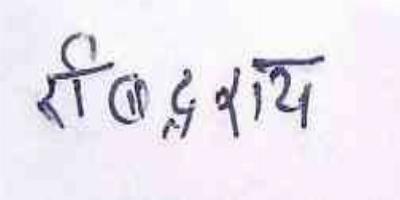 रविद्र राय